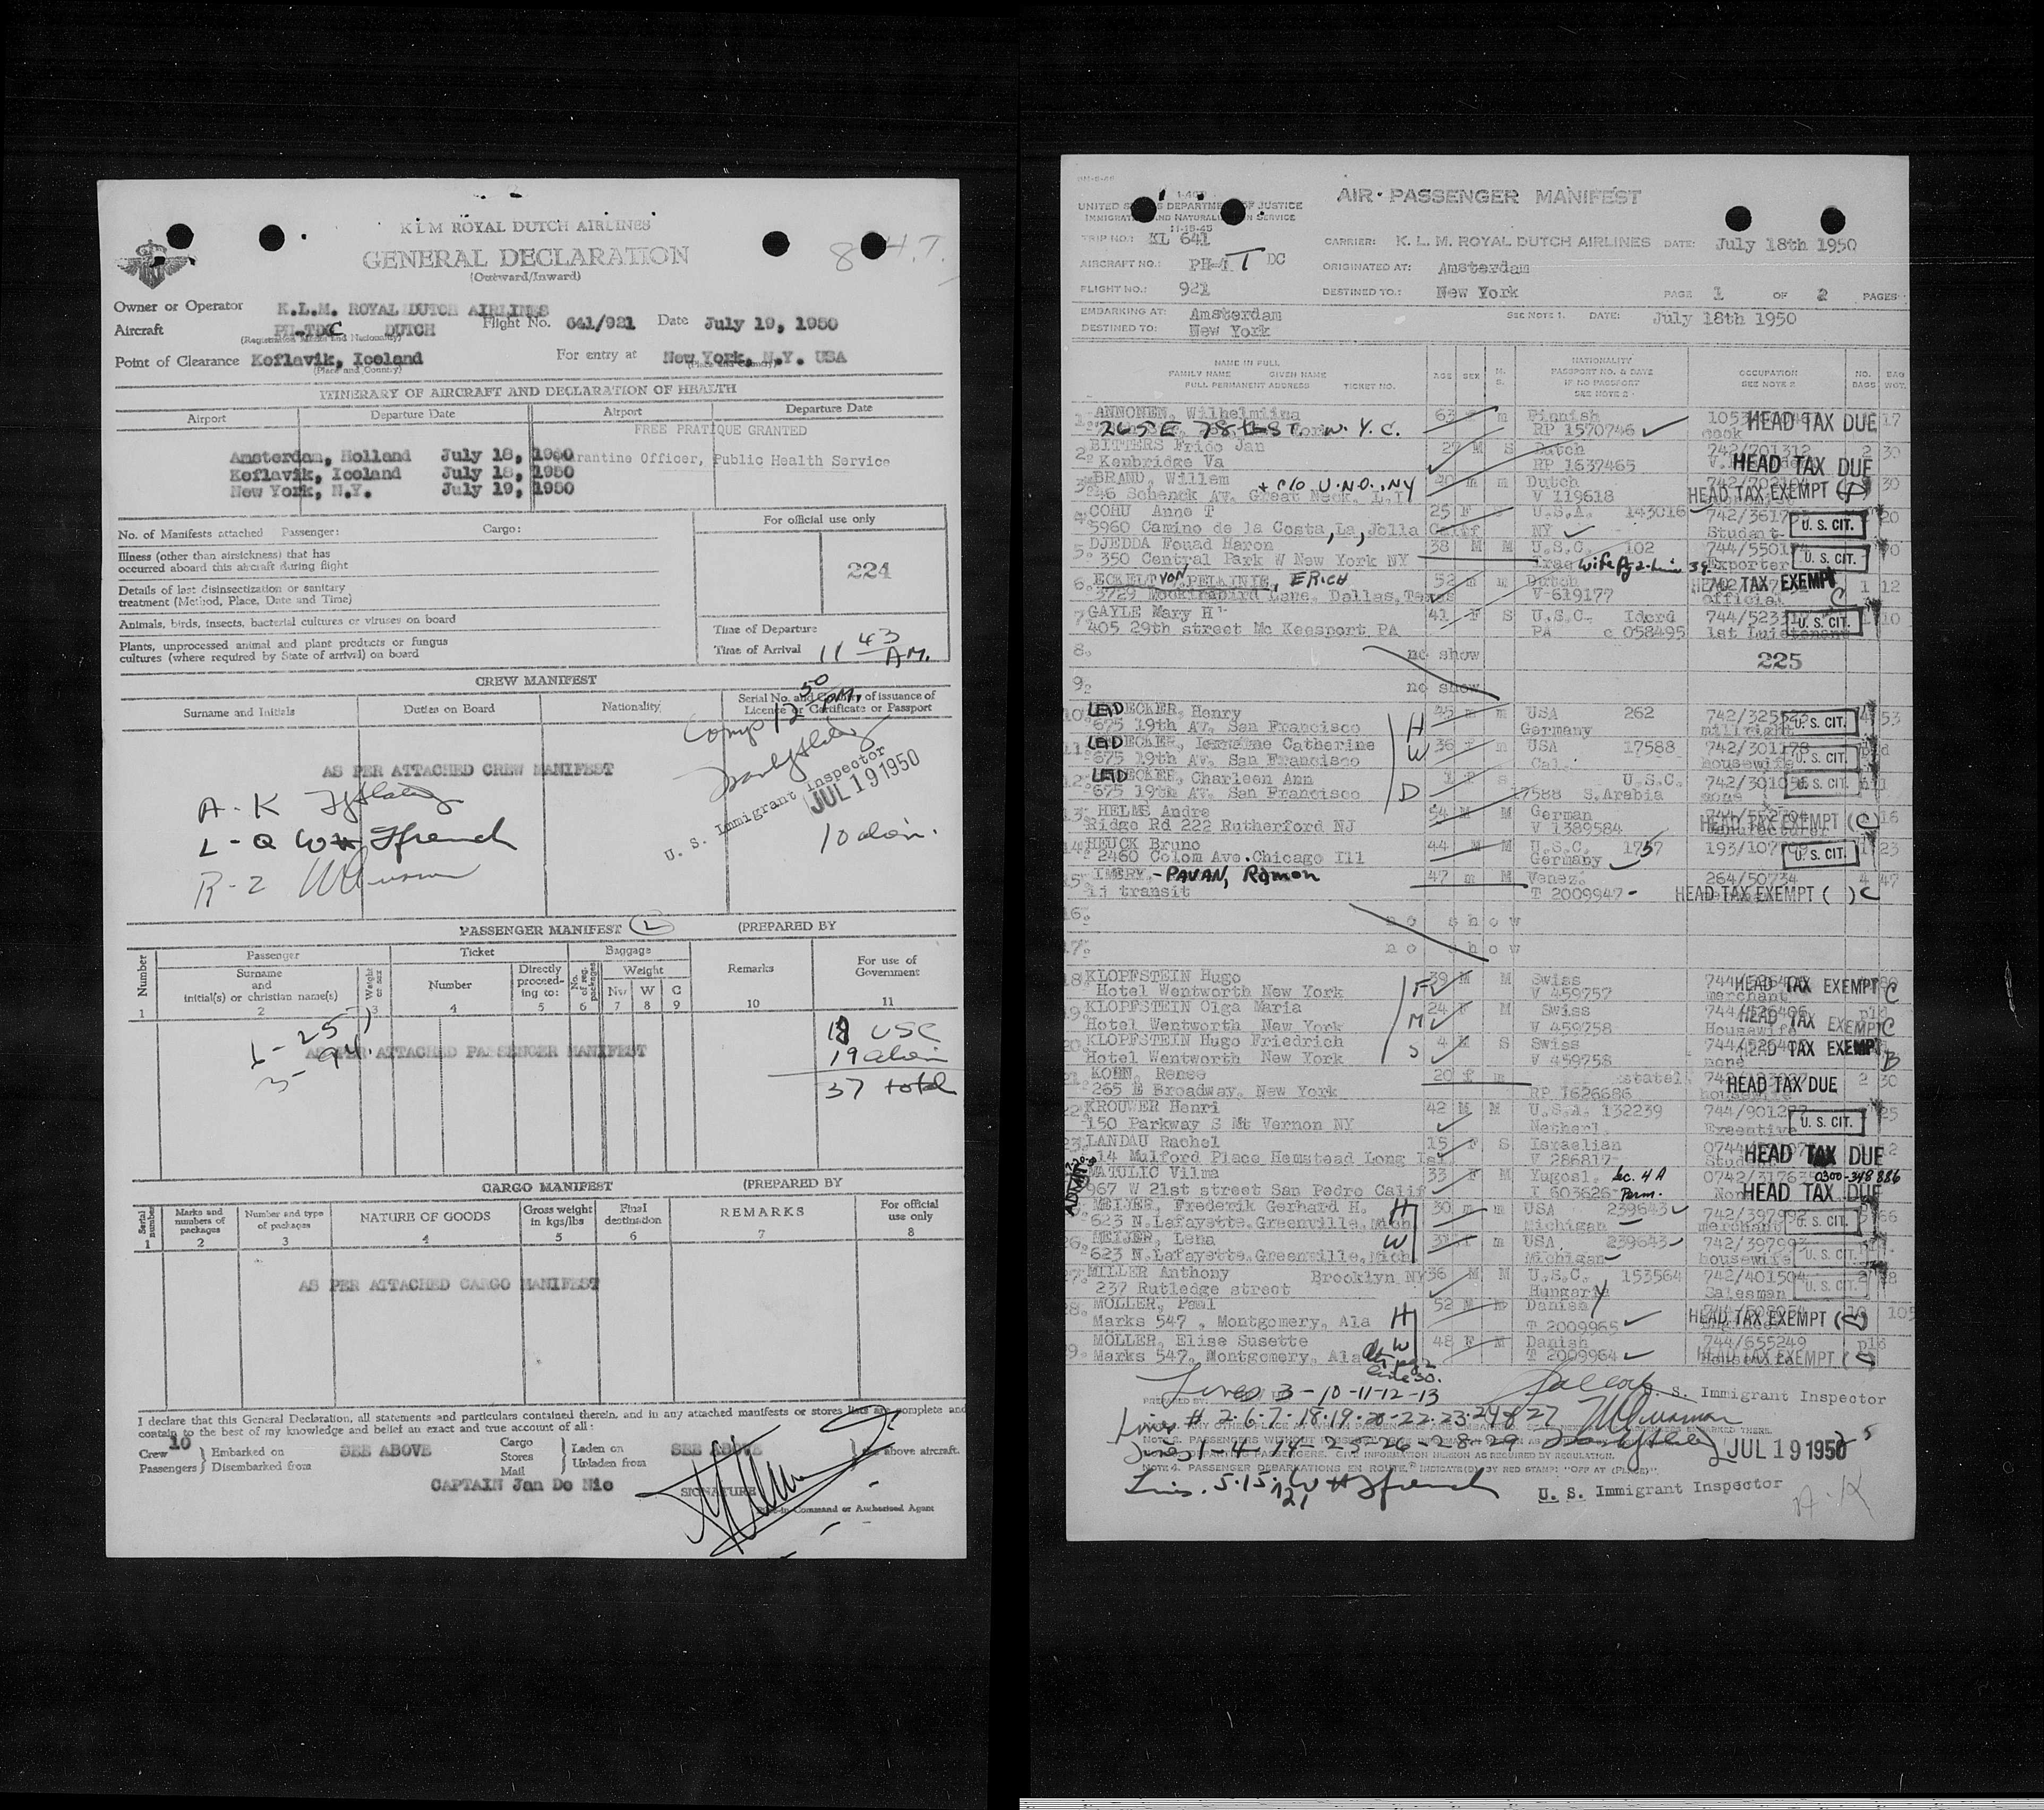 K L M ROYAL DUTCH AIRLINES
GENERAL DECLARATION
(Outward/Inward)
8 H.T.
Owner or Operator K.L.M. ROYAL DUTCH AIRLINES
Aircraft PH-TDC DUTCH Flight No. 641/921 Date July 19, 1950
(Registration Marks and Nationality)
Point of Clearance Keflavik, Iceland For entry at New York, N.Y. USA
(Place and Country) (Place and Country)
ITINERARY OF AIRCRAFT AND DECLARATION OF HEALTH
Airport Departure Date Airport Departure Date
FREE PRATIQUE GRANTED
Amsterdam, Holland July 18, 1950
Quarantine Officer, Public Health Service
Keflavik, Iceland July 18, 1950
New York, N.Y. July 19, 1950
No. of Manifests attached Passenger: Cargo:
For official use only
Illness (other than airsickness) that has
occurred aboard this aircraft during flight
224
Details of last disinsectization or sanitary
treatment (Method, Place, Date and Time)
Animals, birds, insects, bacterial cultures or viruses on board
Plants, unprocessed animal and plant products or fungus
cultures (where required by State of arrival) on board
Time of Departure
Time of Arrival 11 43 A.M.
CREW MANIFEST
Surname and Initials Duties on Board Nationality Serial No. and Country of issuance of
Licence or Certificate or Passport
Comp 12 50 PM.
AS PER ATTACHED CREW MANIFEST
U. S. Immigrant Inspector
JUL 19 1950
A - K
L - Q W H Ffrench
R - Z
10 alien.
PASSENGER MANIFEST (PREPARED BY
Number Passenger Ticket Baggage Remarks For use of
Government
Surname
and
initial(s) or christian name(s) Weight or sex Number Directly
proceed-
ing to: No. of reg. packages Weight
Nw W C
1 2 3 4 5 6 7 8 9 10 11
1 - 25
3 - 94.
AS PER ATTACHED PASSENGER MANIFEST
18 USC
19 alien
37 total
CARGO MANIFEST (PREPARED BY
Serial number Marks and
numbers of
packages Number and type
of packages NATURE OF GOODS Gross weight
in kgs/lbs Final
destination REMARKS For official
use only
1 2 3 4 5 6 7 8
AS PER ATTACHED CARGO MANIFEST
I declare that this General Declaration, all statements and particulars contained therein, and in any attached manifests or stores lists are complete and
contain to the best of my knowledge and belief an exact and true account of all:
Crew 10 Embarked on SEE ABOVE Cargo Laden on SEE ABOVE above aircraft.
Passengers Disembarked from Stores Unladen from
Mail
CAPTAIN Jan De Nie SIGNATURE
Pilot-in-Command or Authorised Agent
AIR-PASSENGER MANIFEST
UNITED STATES DEPARTMENT OF JUSTICE
IMMIGRATION AND NATURALIZATION SERVICE
11-15-45
TRIP NO.: KL 641 CARRIER: K. L. M. ROYAL DUTCH AIRLINES DATE: July 18th 1950
AIRCRAFT NO.: PH-T DC ORIGINATED AT: Amsterdam
FLIGHT NO.: 921 DESTINED TO: New York PAGE 1 OF 2 PAGES
EMBARKING AT: Amsterdam SEE NOTE 1. DATE: July 18th 1950
DESTINED TO: New York
NAME IN FULL
FAMILY NAME GIVEN NAME
FULL PERMANENT ADDRESS TICKET NO. AGE SEX M. S. NATIONALITY
PASSPORT NO. & DATE
IF NO PASSPORT
SEE NOTE 2 OCCUPATION
SEE NOTE 2 NO. BAGS BAG WGT.
1. ANNONEN, Wilhelmiina 63 f m Finnish HEAD TAX DUE 17
265 E 78th ST. N.Y.C. RP 1570746 cook
2. BITTERS Frido Jan 27 M S Dutch 742/701312 2 30
Kenbridge Va RP 1637465 HEAD TAX DUE
3. BRAND, Willem + c/o U.N.O., NY m m Dutch 30
46 Schenck Av. Great Neck, L.I V 119618 HEAD TAX EXEMPT
4. COHU Anne T 25 F U.S.A. 143016 20
5960 Camino de la Costa, La, Jolla Calif NY Student U. S. CIT.
5. DJEDDA Fouad Haron 38 M M U.S.C. 102
350 Central Park W New York NY Iraq Wife Pg 2-Line 34 Exporter U. S. CIT.
6. ECKELT VON PELKINIE, ERICH 52 m m Dutch HEAD TAX EXEMPT 1 12
3729 Mockingbird Lane, Dallas, Texas V-619177 official C
7. GAYLE Mary H 41 F S U.S.C. Idcrd U. S. CIT. 10
405 29th street Mc Keesport PA PA c 058495 1st Luietenent
8. no show 225
9. no show
10. LEIDECKER, Henry 45 m m USA 262 U. S. CIT. 53
675 19th AV. San Francisco H Germany millright
11. LEIDECKER, Catherine 36 f m USA 17588 742/301178
675 19th AV. San Francisco W Cal. housewife U. S. CIT.
12. LEIDECKER, Charleen Ann 1 F s U.S.C.
675 19th AV. San Francisco D 17588 S.Arabia none U. S. CIT.
13. HELMS Andre 54 M M German HEAD TAX EXEMPT (C) 16
Ridge Rd 222 Rutherford NJ V 1389584
14. HEUCK Bruno 44 M M U.S.C. 1757 U. S. CIT. 23
2460 Colom Ave.Chicago Ill Germany
15. IMERY - PAVAN, Ramon 47 m M Venez. 264/50734 4 47
in transit T 2009947 - HEAD TAX EXEMPT ( ) C
16. no show
17. no show
18. KLOPFSTEIN Hugo 39 M M Swiss HEAD TAX EXEMPT C
Hotel Wentworth New York F V 459757 merchant
19. KLOPFSTEIN Olga Maria 24 F M Swiss
Hotel Wentworth New York M V 459758 Housewife HEAD TAX EXEMPT C
20. KLOPFSTEIN Hugo Friedrich 4 M S Swiss HEAD TAX EXEMPT B
Hotel Wentworth New York S V 459758 none
21. KOHN, Renee 20 f m statel. 2 30
265 E Broadway, New York RP 1626686 housewife HEAD TAX DUE
22. KROUWER Henri 42 M M U.S.A. 132239 25
150 Parkway S Mt Vernon NY Netherl. Executive U. S. CIT.
23. LANDAU Rachel 15 F S Israelian
14 Mulford Place Hemstead Long Isl V 286817 Student HEAD TAX DUE
MATULIC Vilma 33 F M Yugosl. Sec. 4 A 0300-348886
967 W 21st street San Pedro Calif T 603626 Perm. HEAD TAX DUE
ADMIT
MEIJER, Frederik Gerhard H. H 30 m m USA 239643 742/397992 66
623 N.Lafayette.Greenville,Mich Michigan merchant U. S. CIT.
26. MEIJER, Lena W 31 f m USA 239643
623 N.Lafayette.Greenville,Mich Michigan housewife U. S. CIT.
27. MILLER Anthony Brooklyn NY 36 M M U.S.C. 153564 742/401504
237 Rutledge street Hungary Salesman U. S. CIT.
28. MÖLLER, Poul 52 M M Danish
Marks 547, Montgomery, Ala H T 2009965 HEAD TAX EXEMPT 105
29. MÖLLER, Elise Susette W 48 F M Danish 744/655249
Marks 547, Montgomery, Ala T 2009964 Housewife HEAD TAX EXEMPT
line 30.
Lines 3-10-11-12-13 U. S. Immigrant Inspector
Lines # 2.6.7.18.19.20-22.23.24 & 27
Lines 1-4-14-25-26-28-29 JUL 19 1950
NOTE 4. PASSENGER DEBARKATIONS EN ROUTE, INDICATE(D) BY RED STAMP: "OFF AT (PLACE)".
Lines. 5.15. 21 W H Ffrench U. S. Immigrant Inspector
A-K